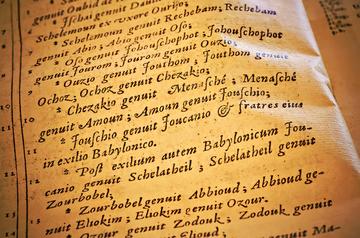 genuit Oubid de
Jschai genuit Dauid
Schelemoun ex vxore Ourijo;
Schelemoun genuit Rechebam; Rechebam
genuit Abio; Abio genuit Oso;
Oso genuit Jehouschophot; Jehouschophot
genuit Jourom; Jourom genuit Ouzio;
Ouzio genuit Jouthom; Jouthom genuit
Ochoz; Ochoz genuit Chezakio;
10 Chezakio genuit Menasché; Menasché
genuit Amoun; Amoun genuit Jouschio;
11 Jouschio genuit Joucanio & fratres eius
in exilio Babylonico.
12 Post exilium autem Babylonicum Jou-
canio genuit Schelatheil; Schelatheil genuit
Zourbobel;
13 Zourbobel genuit Abbioud; Abbioud ge-
nuit Eliokim; Eliokim genuit Ozour.
Ozour genuit Zodouk; Zodouk genuit
genuit Elioud;